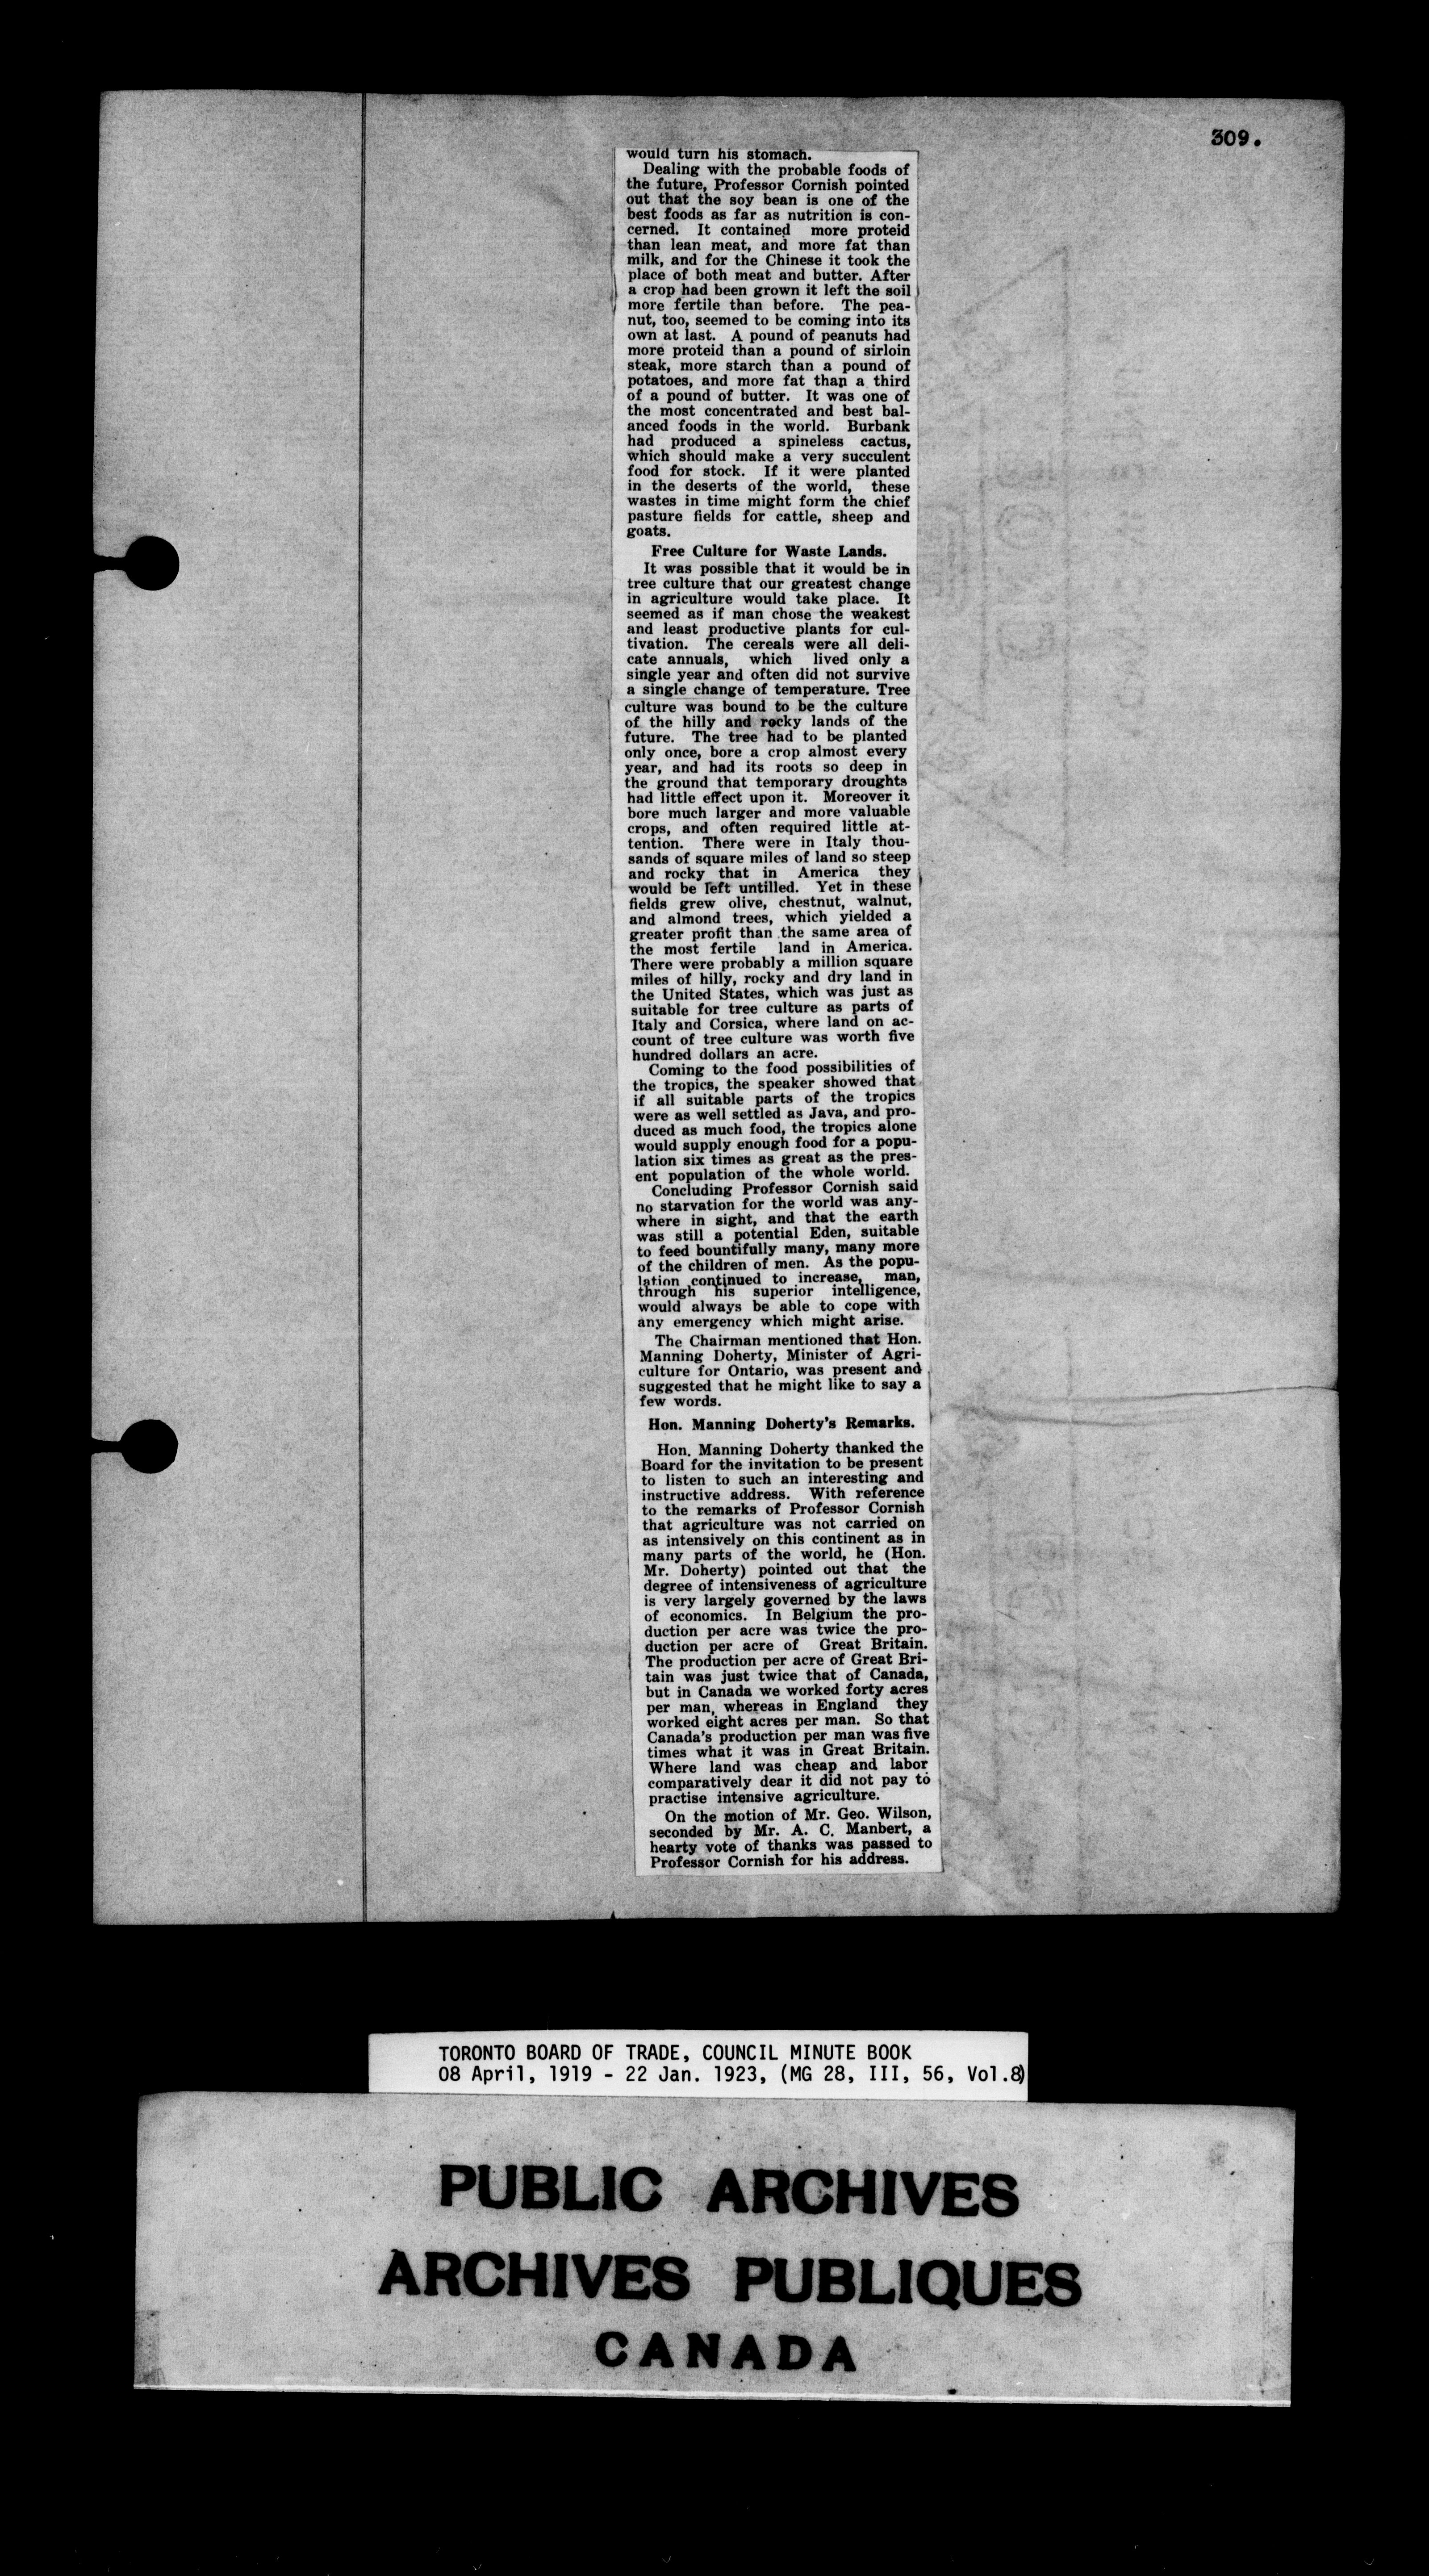 309.
would turn his stomach.
Dealing with the probable foods of
the future, Professor Cornish pointed
out that the soy bean is one of the
best foods as far as nutrition is con-
cerned. It contained more proteid
than lean meat, and more fat than
milk, and for the Chinese it took the
place of both meat and butter. After
a crop had been grown it left the soil
more fertile than before. The pea-
nut, too, seemed to be coming into its
own at last. A pound of peanuts had
more proteid than a pound of sirloin
steak, more starch than a pound of
potatoes, and more fat than a third
of a pound of butter. It was one of
the most concentrated and best bal-
anced foods in the world. Burbank
had produced a spineless cactus,
which should make a very succulent
food for stock. If it were planted
in the deserts of the world, these
wastes in time might form the chief
pasture fields for cattle, sheep and
goats.
Free Culture for Waste Lands.
It was possible that it would be in
tree culture that our greatest change
in agriculture would take place. It
seemed as if man chose the weakest
and least productive plants for cul-
tivation. The cereals were all deli-
cate annuals, which lived only a
single year and often did not survive
a single change of temperature. Tree
culture was bound to be the culture
of the hilly and rocky lands of the
future. The tree had to be planted
only once, bore a crop almost every
year, and had its roots so deep in
the ground that temporary droughts
had little effect upon it. Moreover it
bore much larger and more valuable
crops, and often required little at-
tention. There were in Italy thou-
sands of square miles of land so steep
and rocky that in America they
would be left untilled. Yet in these
fields grew olive, chestnut, walnut,
and almond trees, which yielded a
greater profit than the same area of
the most fertile land in America.
There were probably a million square
miles of hilly, rocky and dry land in
the United States, which was just as
suitable for tree culture as parts of
Italy and Corsica, where land on ac-
count of tree culture was worth five
hundred dollars an acre.
Coming to the food possibilities of
the tropics, the speaker showed that
if all suitable parts of the tropics
were as well settled as Java, and pro-
duced as much food, the tropics alone
would supply enough food for a popu-
lation six times as great as the pres-
ent population of the whole world.
Concluding Professor Cornish said
no starvation for the world was any-
where in sight, and that the earth
was still a potential Eden, suitable
to feed bountifully many, many more
of the children of men. As the popu-
lation continued to increase, man,
through his superior intelligence,
would always be able to cope with
any emergency which might arise.
The Chairman mentioned that Hon.
Manning Doherty, Minister of Agri-
culture for Ontario, was present and
suggested that he might like to say a
few words.
Hon. Manning Doherty's Remarks.
Hon. Manning Doherty thanked the
Board for the invitation to be present
to listen to such an interesting and
instructive address. With reference
to the remarks of Professor Cornish
that agriculture was not carried on
as intensively on this continent as in
many parts of the world, he (Hon.
Mr. Doherty) pointed out that the
degree of intensiveness of agriculture
is very largely governed by the laws
of economics. In Belgium the pro-
duction per acre was twice the pro-
duction per acre of Great Britain.
The production per acre of Great Bri-
tain was just twice that of Canada,
but in Canada we worked forty acres
per man, whereas in England they
worked eight acres per man. So that
Canada's production per man was five
times what it was in Great Britain.
Where land was cheap and labor
comparatively dear it did not pay to
practise intensive agriculture.
On the motion of Mr. Geo. Wilson,
seconded by Mr. A. C. Manbert, a
hearty vote of thanks was passed to
Professor Cornish for his address.
TORONTO BOARD OF TRADE, COUNCIL MINUTE BOOK
08 April, 1919 - 22 Jan. 1923, (MG 28, III, 56, Vol.8)
PUBLIC ARCHIVES
ARCHIVES PUBLIQUES
CANADA